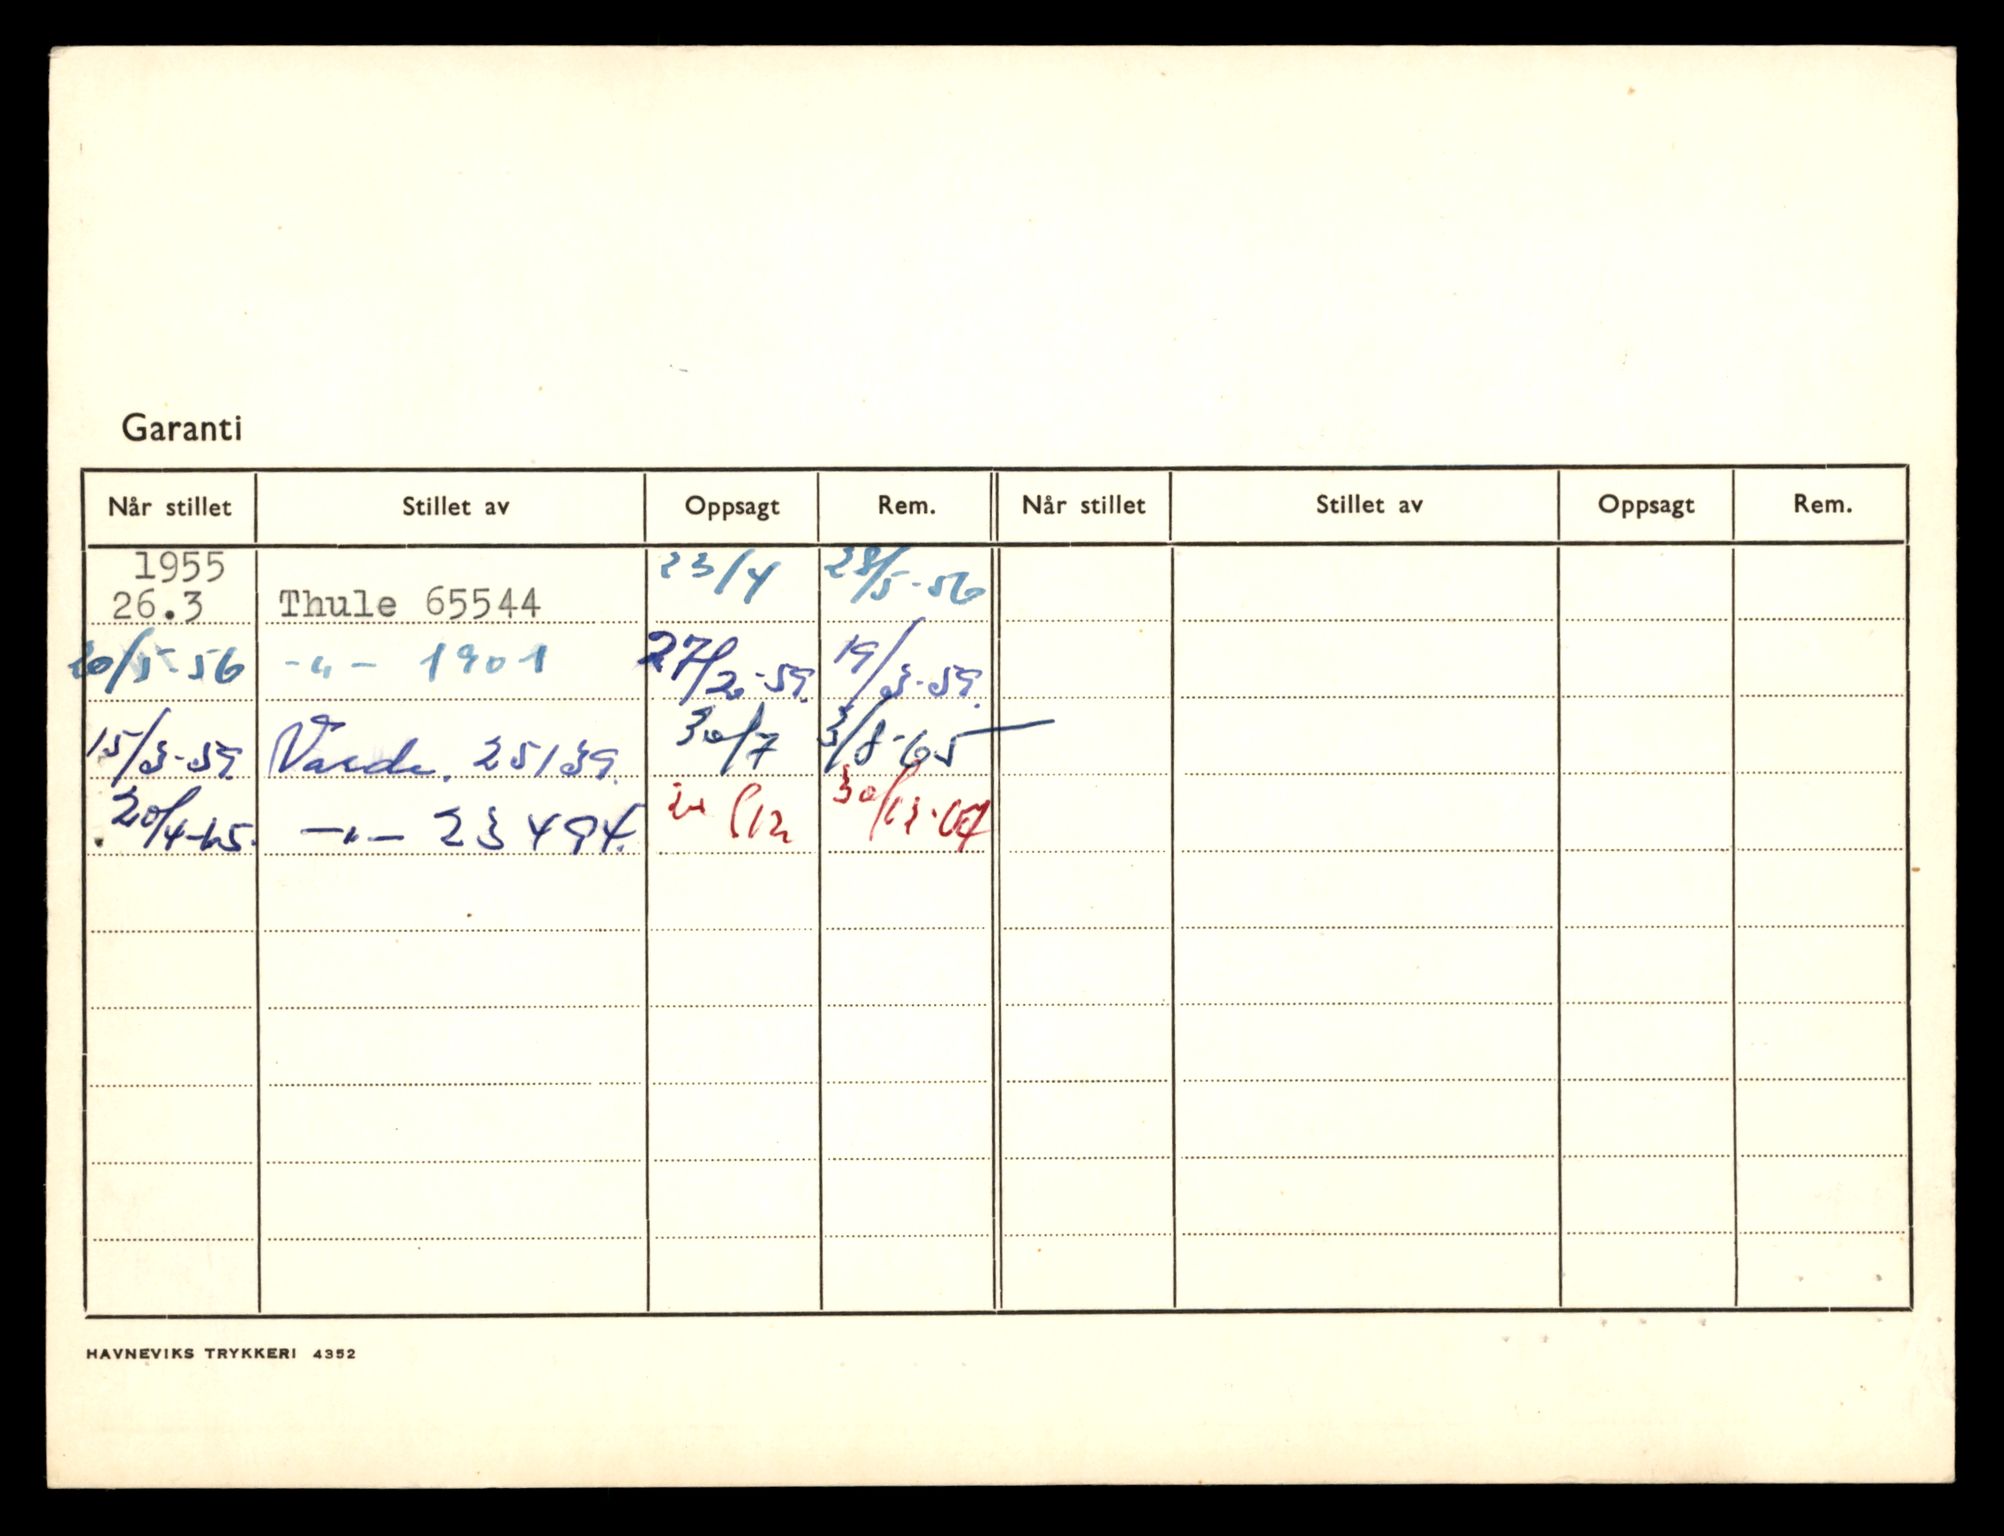 Garanti
Når stillet Stillet av Oppsagt Rem. Når stillet Stillet av Oppsagt Rem.
1955 23/4 28/5-56
26.3 Thule 65544
20/5-56 -"- 1901 27/2-59. 19/3-59.
15/3-59. 25139. 30/7 3/8-65
20/4-65. -"- 23494. /12 30/12-67
HAVNEVIKS TRYKKERI 4352